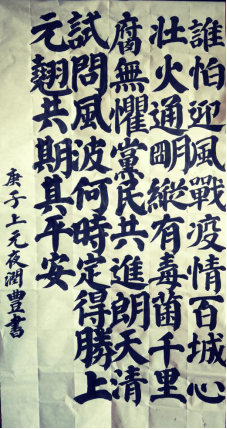 誰怕迎風戰疫情百城心
壯火通明縱有毒菌千里
腐無懼黨民共進朗天清
試問風波何時定得勝上
元翹共期其平安
庚子上元夜潤豐書